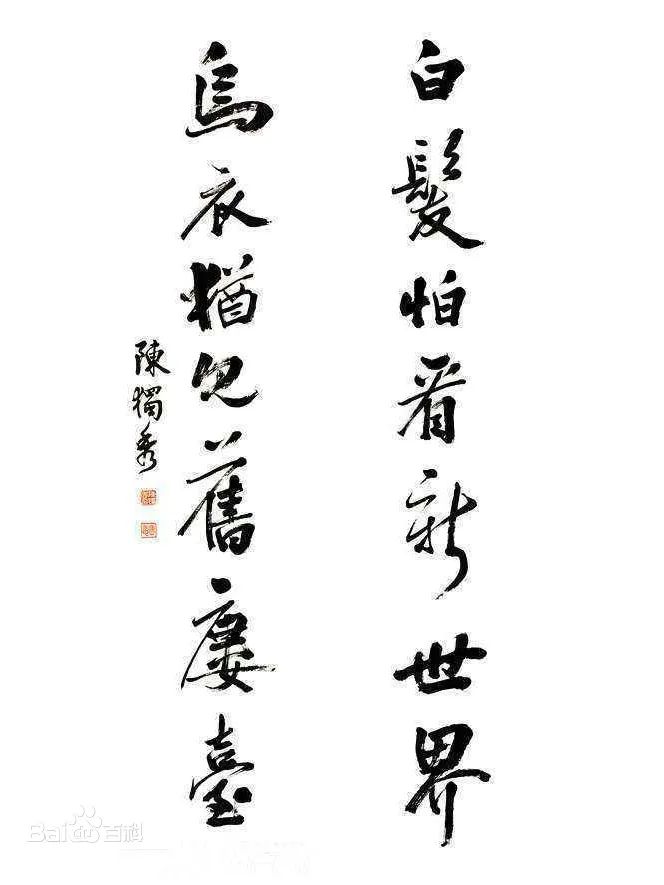 白髮怕看新世界
烏衣猶見舊廔臺
陳獨秀
Baidu百科